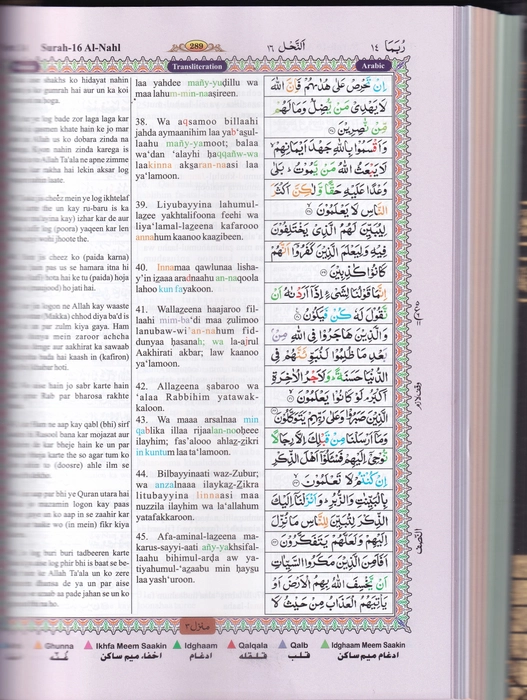 Surah-16 Al-Nahl
289
اَلنَّحْل ١٦
رُبَمَا ١٤
Transliteration
Arabic
shaks ko hidayat nahin
gumrah hai aur un ka koi
hoga.
log bade zor laga laga kar
khate hain ke jo mar
us ko dobara zinda na
nahin zinda karega is
Allah Ta'ala ne apne zimme
rakha hai lekin aksar log
late.
cheez mein ye log ikhtelaf
the un kay ru-baru is ka
kin) izhar kar de aur
(poora) yaqeen kar len
jhoote the.
cheez ko (paida karna)
pas us se hamara itna hi
hota hai ke tu (paida) hoja
(maujood) ho jati hai.
logon ne Allah kay waaste
(Makka) chhod diya ba'd is
par zulm kiya gaya. Ham
mein zaroor achcha
aur aakhirat ka sawaab
bada hai kaash in (kafiron)
hoti.
hain jo sabr karte hain
Rab par bharosa rakhte
ne aap kay qabl (bhi) sirf
Rasool bana kar mojazat aur
kar bheje hain ke un par
karte the so agar tum ko
to (doosre) ahle ilm se
par bhi ye Quran utara hai
mazamin logon kay paas
un ko aap in se zaahir kar
taake wo (in mein) fikr kiya
log buri buri tadbeeren karte
log phir bhi is baat se be-
ke Allah Ta'ala un ko zere
dhansa de ya un par aise
azaab aa pade jahan se un ko
na ho.
laa yahdee mañy-yuḍillu wa
maa lahum-min-naaṣireen.
38. Wa aqsamoo billaahi
jahda aymaanihim laa yab'aṣul-
laahu mañy-yamoot; balaa
wa'dan 'alayhi ḥaqqañw-wa
laakinna akṣaran-naasi laa
ya'lamoon.
39. Liyubayyina lahumul-
lazee yakhtalifoona feehi wa
liya'lamal-lazeena kafarooo
annahum kaanoo kaazibeen.
40. Innamaa qawlunaa lisha-
y'in izaaa aradnaahu an-naqoola
lahoo kun fayakoon.
41. Wallazeena haajaroo fil-
laahi mim-ba'di maa zulimoo
lanubaw-wi'an-nahum fid-
dunyaa ḥasanah; wa la-ajrul
Aakhirati akbar; law kaanoo
ya'lamoon.
42. Allazeena ṣabaroo wa
'alaa Rabbihim yatawak-
kaloon.
43. Wa maaa arsalnaa min
qablika illaa rijaalan-nooḥeee
ilayhim; fas'alooo ahlaz-zikri
in kuntum laa ta'lamoon.
44. Bilbayyinaati waz-Zubur;
wa anzalnaaa ilaykaz-Zikra
litubayyina linnaasi maa
nuzzila ilayhim wa la'allahum
yatafakkaroon.
45. Afa-aminal-lazeena ma-
karus-sayyi-aati añy-yakhsifal-
laahu bihimul-arḍa aw ya-
tiyahumul-'azaabu min ḥayṣu
laa yash'uroon.
اِنْ تَحْرِصْ عَلٰى هُدٰىهُمْ فَاِنَّ اللّٰهَ
لَا يَهْدِىْ مَنْ يُّضِلُّ وَمَا لَهُمْ
مِّنْ نّٰصِرِيْنَ
وَاَقْسَمُوْا بِاللّٰهِ جَهْدَ اَيْمَانِهِمْ
لَا يَبْعَثُ اللّٰهُ مَنْ يَّمُوْتُ ؕ بَلٰى
وَعْدًا عَلَيْهِ حَقًّا وَّلٰكِنَّ اَكْثَرَ
النَّاسِ لَا يَعْلَمُوْنَ
لِيُبَيِّنَ لَهُمُ الَّذِىْ يَخْتَلِفُوْنَ
فِيْهِ وَلِيَعْلَمَ الَّذِيْنَ كَفَرُوْۤا اَنَّهُمْ
كَانُوْا كٰذِبِيْنَ
اِنَّمَا قَوْلُنَا لِشَىْءٍ اِذَاۤ اَرَدْنٰهُ اَنْ
نَّقُوْلَ لَهٗ كُنْ فَيَكُوْنُ
وَالَّذِيْنَ هَاجَرُوْا فِى اللّٰهِ مِنْۢ
بَعْدِ مَا ظُلِمُوْا لَنُبَوِّئَنَّهُمْ فِى
الدُّنْيَا حَسَنَةً ؕ وَلَاَجْرُ الْاٰخِرَةِ
اَكْبَرُ ۘ لَوْ كَانُوْا يَعْلَمُوْنَ
الَّذِيْنَ صَبَرُوْا وَعَلٰى رَبِّهِمْ يَتَوَكَّلُوْنَ
وَمَاۤ اَرْسَلْنَا مِنْ قَبْلِكَ اِلَّا رِجَالًا
نُّوْحِىْۤ اِلَيْهِمْ فَسْئَلُوْۤا اَهْلَ الذِّكْرِ
اِنْ كُنْتُمْ لَا تَعْلَمُوْنَ
بِالْبَيِّنٰتِ وَالزُّبُرِ ؕ وَاَنْزَلْنَاۤ اِلَيْكَ
الذِّكْرَ لِتُبَيِّنَ لِلنَّاسِ مَا نُزِّلَ
اِلَيْهِمْ وَلَعَلَّهُمْ يَتَفَكَّرُوْنَ
اَفَاَمِنَ الَّذِيْنَ مَكَرُوا السَّيِّاٰتِ
اَنْ يَّخْسِفَ اللّٰهُ بِهِمُ الْاَرْضَ اَوْ
يَاْتِيَهُمُ الْعَذَابُ مِنْ حَيْثُ لَا
النصف
منزل ٣
Ghunna
Ikhfa Meem Saakin
Idghaam
Qalqala
Qalb
Idghaam Meem Saakin
غُنّہ
اخفاء میم ساکن
ادغام
قلقلہ
قلب
ادغام میم ساکن